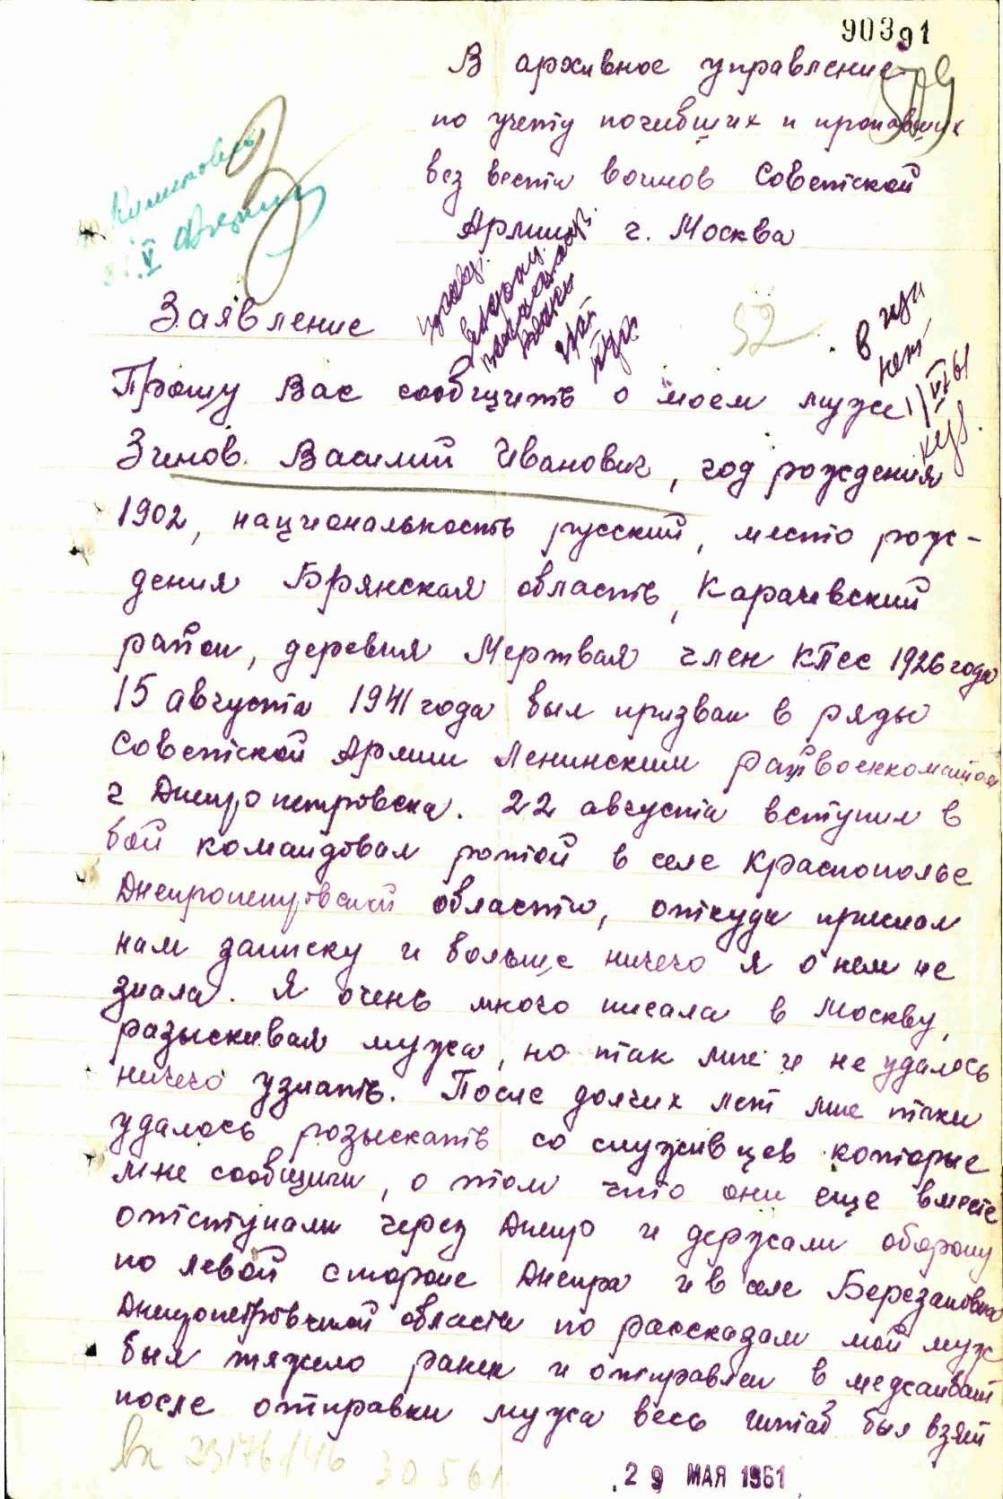 90391
В архивное управление
по учету погибших и пропавших
без вести воинов Советской
Армии г. Москва
Заявление
52
в изи
нет
Прошу Вас сообщить о моем муже
Зинов Василий Иванович, год рождения
1902, национальность русский, место рож-
дения Брянская область, Карачевский
район, деревня Мертвая член КПСС 1926 года
15 августа 1941 года был призван в ряды
Советской Армии Ленинским райвоенкоматом
г Днепропетровска. 22 августа вступил в
бой командовал ротой в селе Краснополье
Днепропетровской областью, откуда прислал
нам записку и больше ничего я о нем не
знала. Я очень много писала в Москву,
разыскивая мужа, но так мне и не удалось
ничего узнать. После долгих лет мне таки
удалось розыскать со служивцев которые
мне сообщили, о том что они еще вместе
отступали через Днепр и держали оборону
по левой стороне Днепра и в селе Березановка
Днепропетровской области по рассказам мой муж
был тяжело ранен и отправлен в медсанбат
после отправки мужа весь штаб был взят
вх 23176/46 30 5 61
29 МАЯ 1961